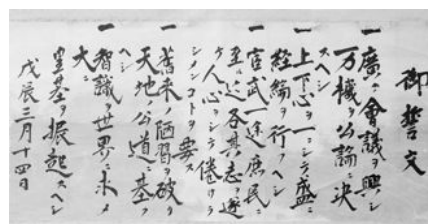 御誓文
一 廣ク會議ヲ興シ
万機公論ニ決
スヘシ
一 上下心ヲ一ニシテ盛ニ
経綸ヲ行フヘシ
一 官武一途庶民ニ
至ル迄各其志ヲ遂
ケ人心ヲシテ倦マサラ
シメンコトヲ要ス
一 舊来ノ陋習ヲ破リ
天地ノ公道ニ基ク
ヘシ
一 智識ヲ世界ニ求メ
大ニ
皇基ヲ振起スヘシ
戊辰三月十四日